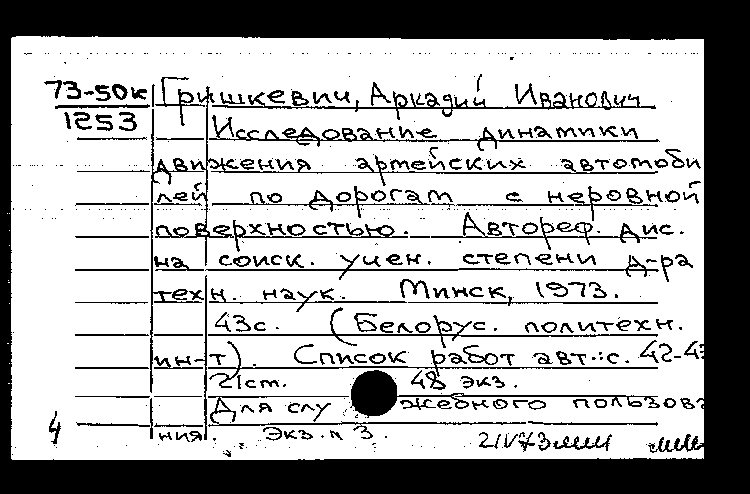 73-50к Гришкевич, Аркадий Иванович
1253 Исследование динамики
движения армейских автомоби
лей по дорогам с неровной
поверхностью. Автореф. дис.
на соиск. учен. степени д-ра
техн. наук. Минск, 1973.
43с. (Белорус. политехн.
ин-т). Список работ авт.: с. 42-43
21 ст. 48 экз.
Для служебного пользова
4 ния. Экз. № 3. 2/IV73